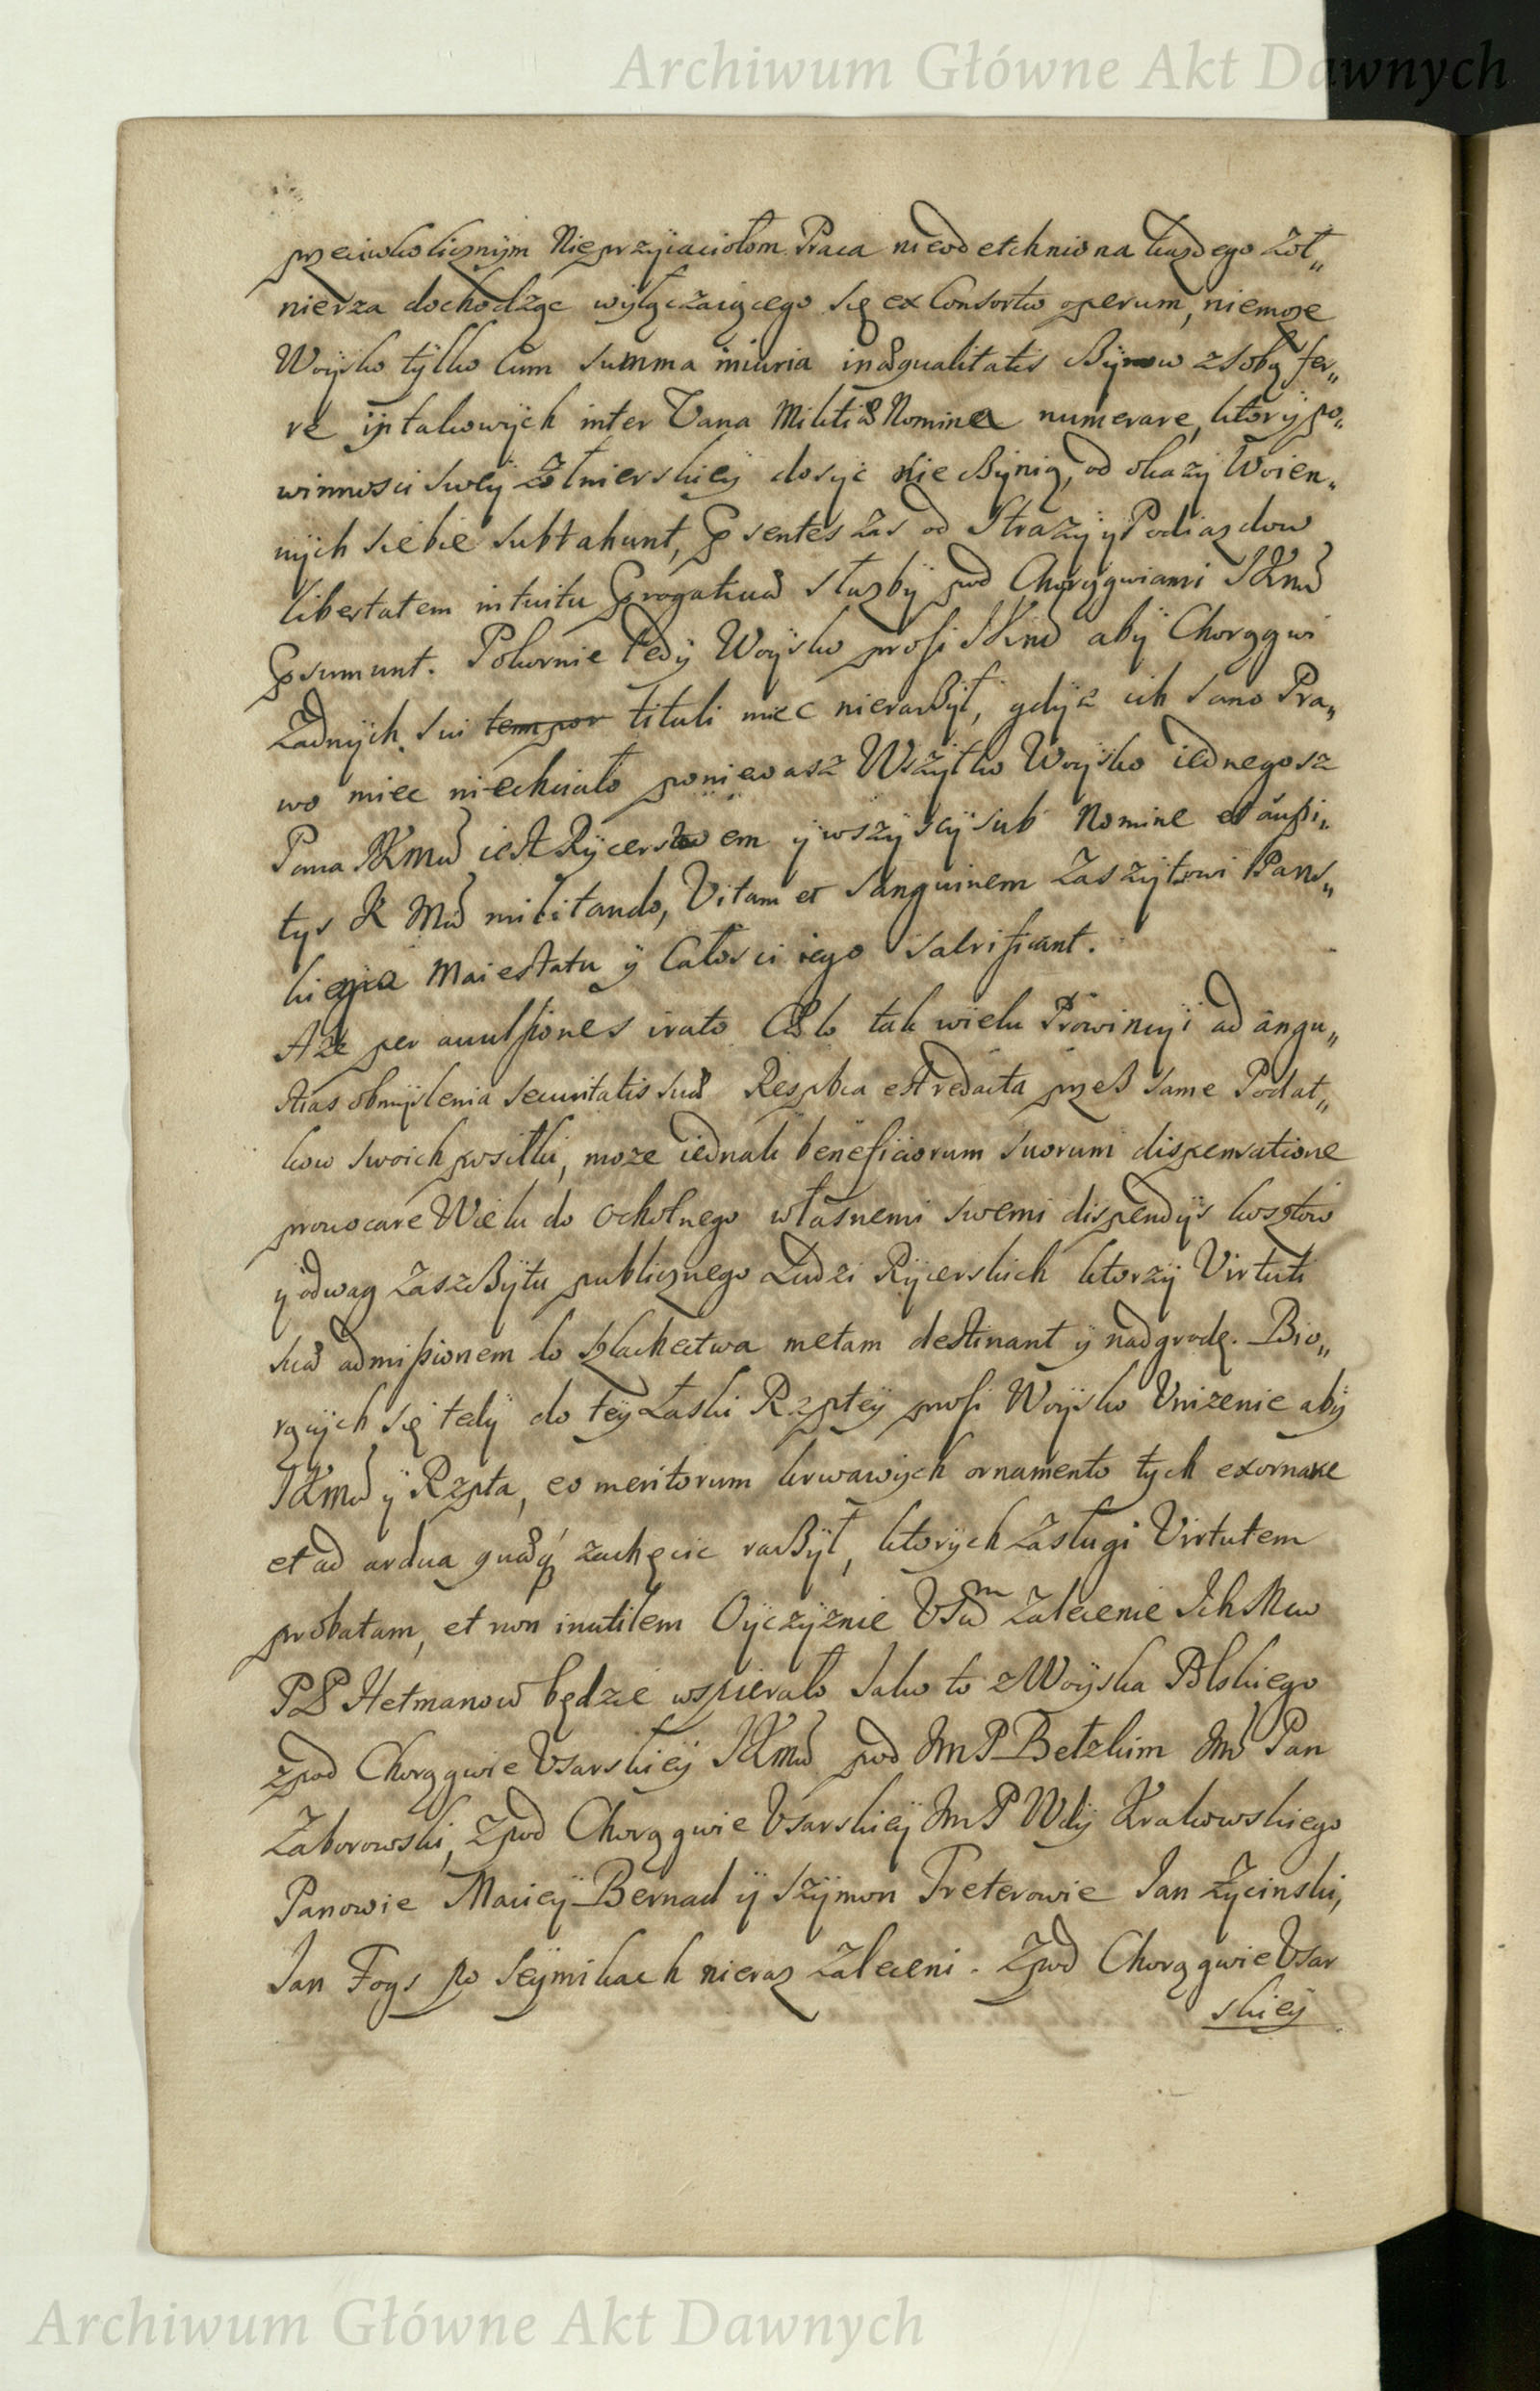 Archiwum Główne Akt Dawnych
przeciwko licznÿm Nieprzÿiaciołom Praca nieodetchniona kazdego Zoł„
nierza dochodząc wÿłączaiącego się ex Consortio operum, niemoze
Woÿsko tÿlko cum summa iniuria inæqualitatis ßÿnow zsobą fer„
re ÿ takowÿch inter Vana Militiæ Nomina numerare, ktorÿ po„
winnosci sweÿ Zołnierskieÿ dosÿc nie ßÿnią, od okazÿ Woien„
nÿch siebie subtrahunt, Psentes zas od Strazÿ ÿ Podiazdow
libertatem intuitu Progativæ słuzbÿ pod Chorągwiami JKMci
Psumunt. Pokornie tedÿ Woÿsko prosi JKMci abÿ Chorągwi
Zadnÿch sui tempor tituli miec nieraßÿł, gdÿz ich samo Pra„
wo miec niechciało poniewasz Wszÿtko Woÿsko iednegosz
Pana JKMci iest Rÿcerstwem ÿ wszÿscÿ sub Nomine et auspi„
tys K Mci militando, Vitam et Sanguinem Zaszÿtowi Pans„
kiego Maiestatu ÿ Całosci iego sacrificant.
A ze per avulsiones irato Cælo tak wielu Prowincÿi ad angu„
stias obmÿslenia securitatis suæ Respbca est redacta przeß same Podat„
kow swoich posiłki, moze iednak beneficiorum suorum dispensatione
provocare Wielu do ochotnego własnemi swemi dispendÿs kosztow
ÿ odwag Zaszßÿtu publicznego Ludzi Rÿcerskich ktorzÿ Virtuti
suæ admissionem do szlachectwa metam destinant ÿ nadgrodę. Bio„
rącÿch się tedÿ do teÿ Łaski Rzpteÿ prosi Woÿsko Vnizenie abÿ
JKMci ÿ Rzpta, eo meritorum krwawÿch ornamento tych exornare
et ad ardua quæq zachęcic raßÿł, ktorÿch Zasługi Virtutem
probatam, et non inutilem Oÿczÿznie Zalecenie Ich Mciow
PP Hetmanow będzie wspierało Jako to z Woÿska Polskiego
zpod Chorągwie Vsarskieÿ JKMci pod JmP Bełzkim Jmć Pan
Zaborowski, Zpod Chorągwie Vsarskieÿ JmP Wdÿ Krakowskiego
Panowie Macieÿ Bernad ÿ Szÿmon Treterowie Jan Zÿcinski,
Jan Fogs po Seÿmikach nieraz Zaleceni. Zpod Chorągwie Vsar
skieÿ
Archiwum Główne Akt Dawnych